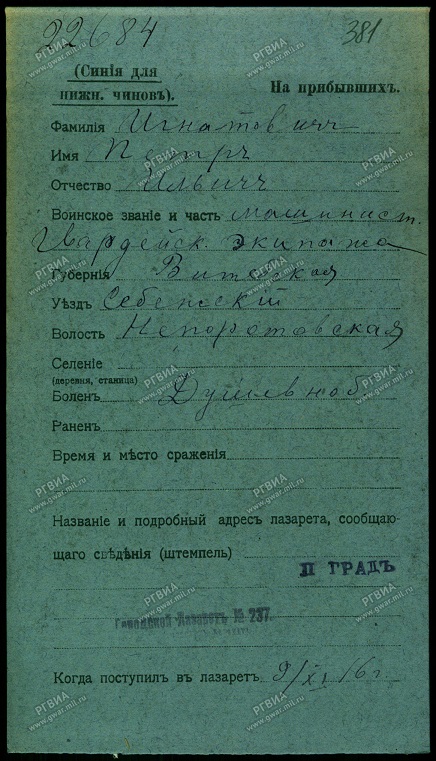 22684
381
(Синія для
нижн. чиновъ).
На прибывшихъ.
Фамилія Игнатовичъ
Имя Петръ
Отчество Ильичъ
Воинское званіе и часть машинист.
Гвардейск. экипажа
Губернія Витебская
Уѣздъ Себежскій
Волость Непоротовская
Селеніе
(деревня, станица)
Боленъ Душевнобол.
Раненъ
Время и мѣсто сраженія
Названіе и подробный адресъ лазарета, сообщаю-
щаго свѣдѣнія (штемпель)
П ГРАДЪ
Городской Лазаретъ № 237.
Когда поступилъ въ лазаретъ 9/XI 16 г
РГВИА
www.gwar.mil.ru